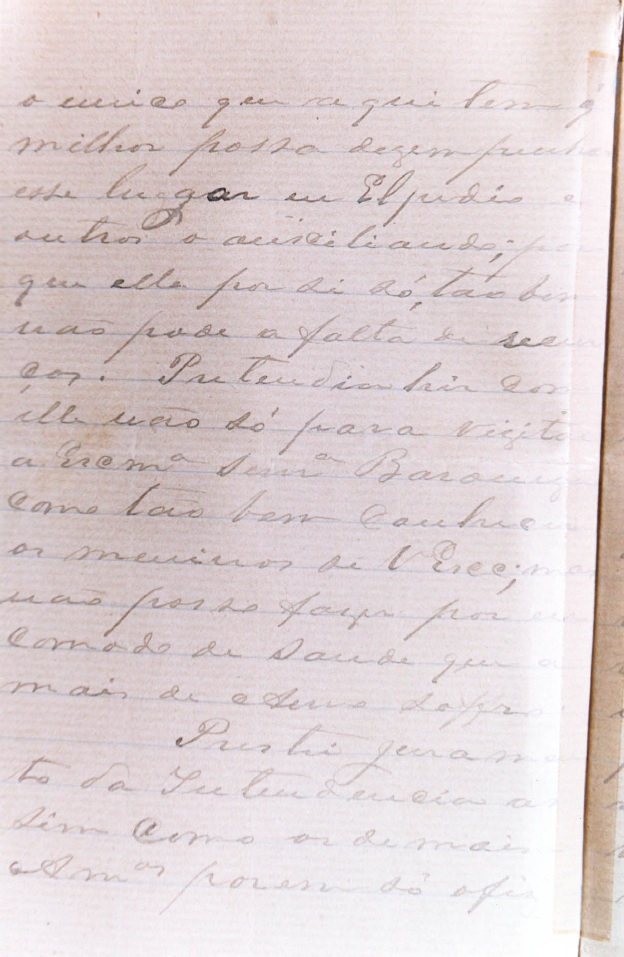 o unico que aqui tem q
milhor possa dezempenhar
esse lugar eu Elpidio e
outros o auxiliando; por
que elle por si só, tão bem
não pode a falta de recur
ços. Pretendia hir com
elle não só para vizitar
a Excmª Senrª Baroneza
como tão bem conhecer
os meninos de V Exc; mas
não posso fazer por in
comodo de saude que a
mais de soffro
Prestei juramen
to da Intendencia as
sim como os demais
Amºs porem só o fiz